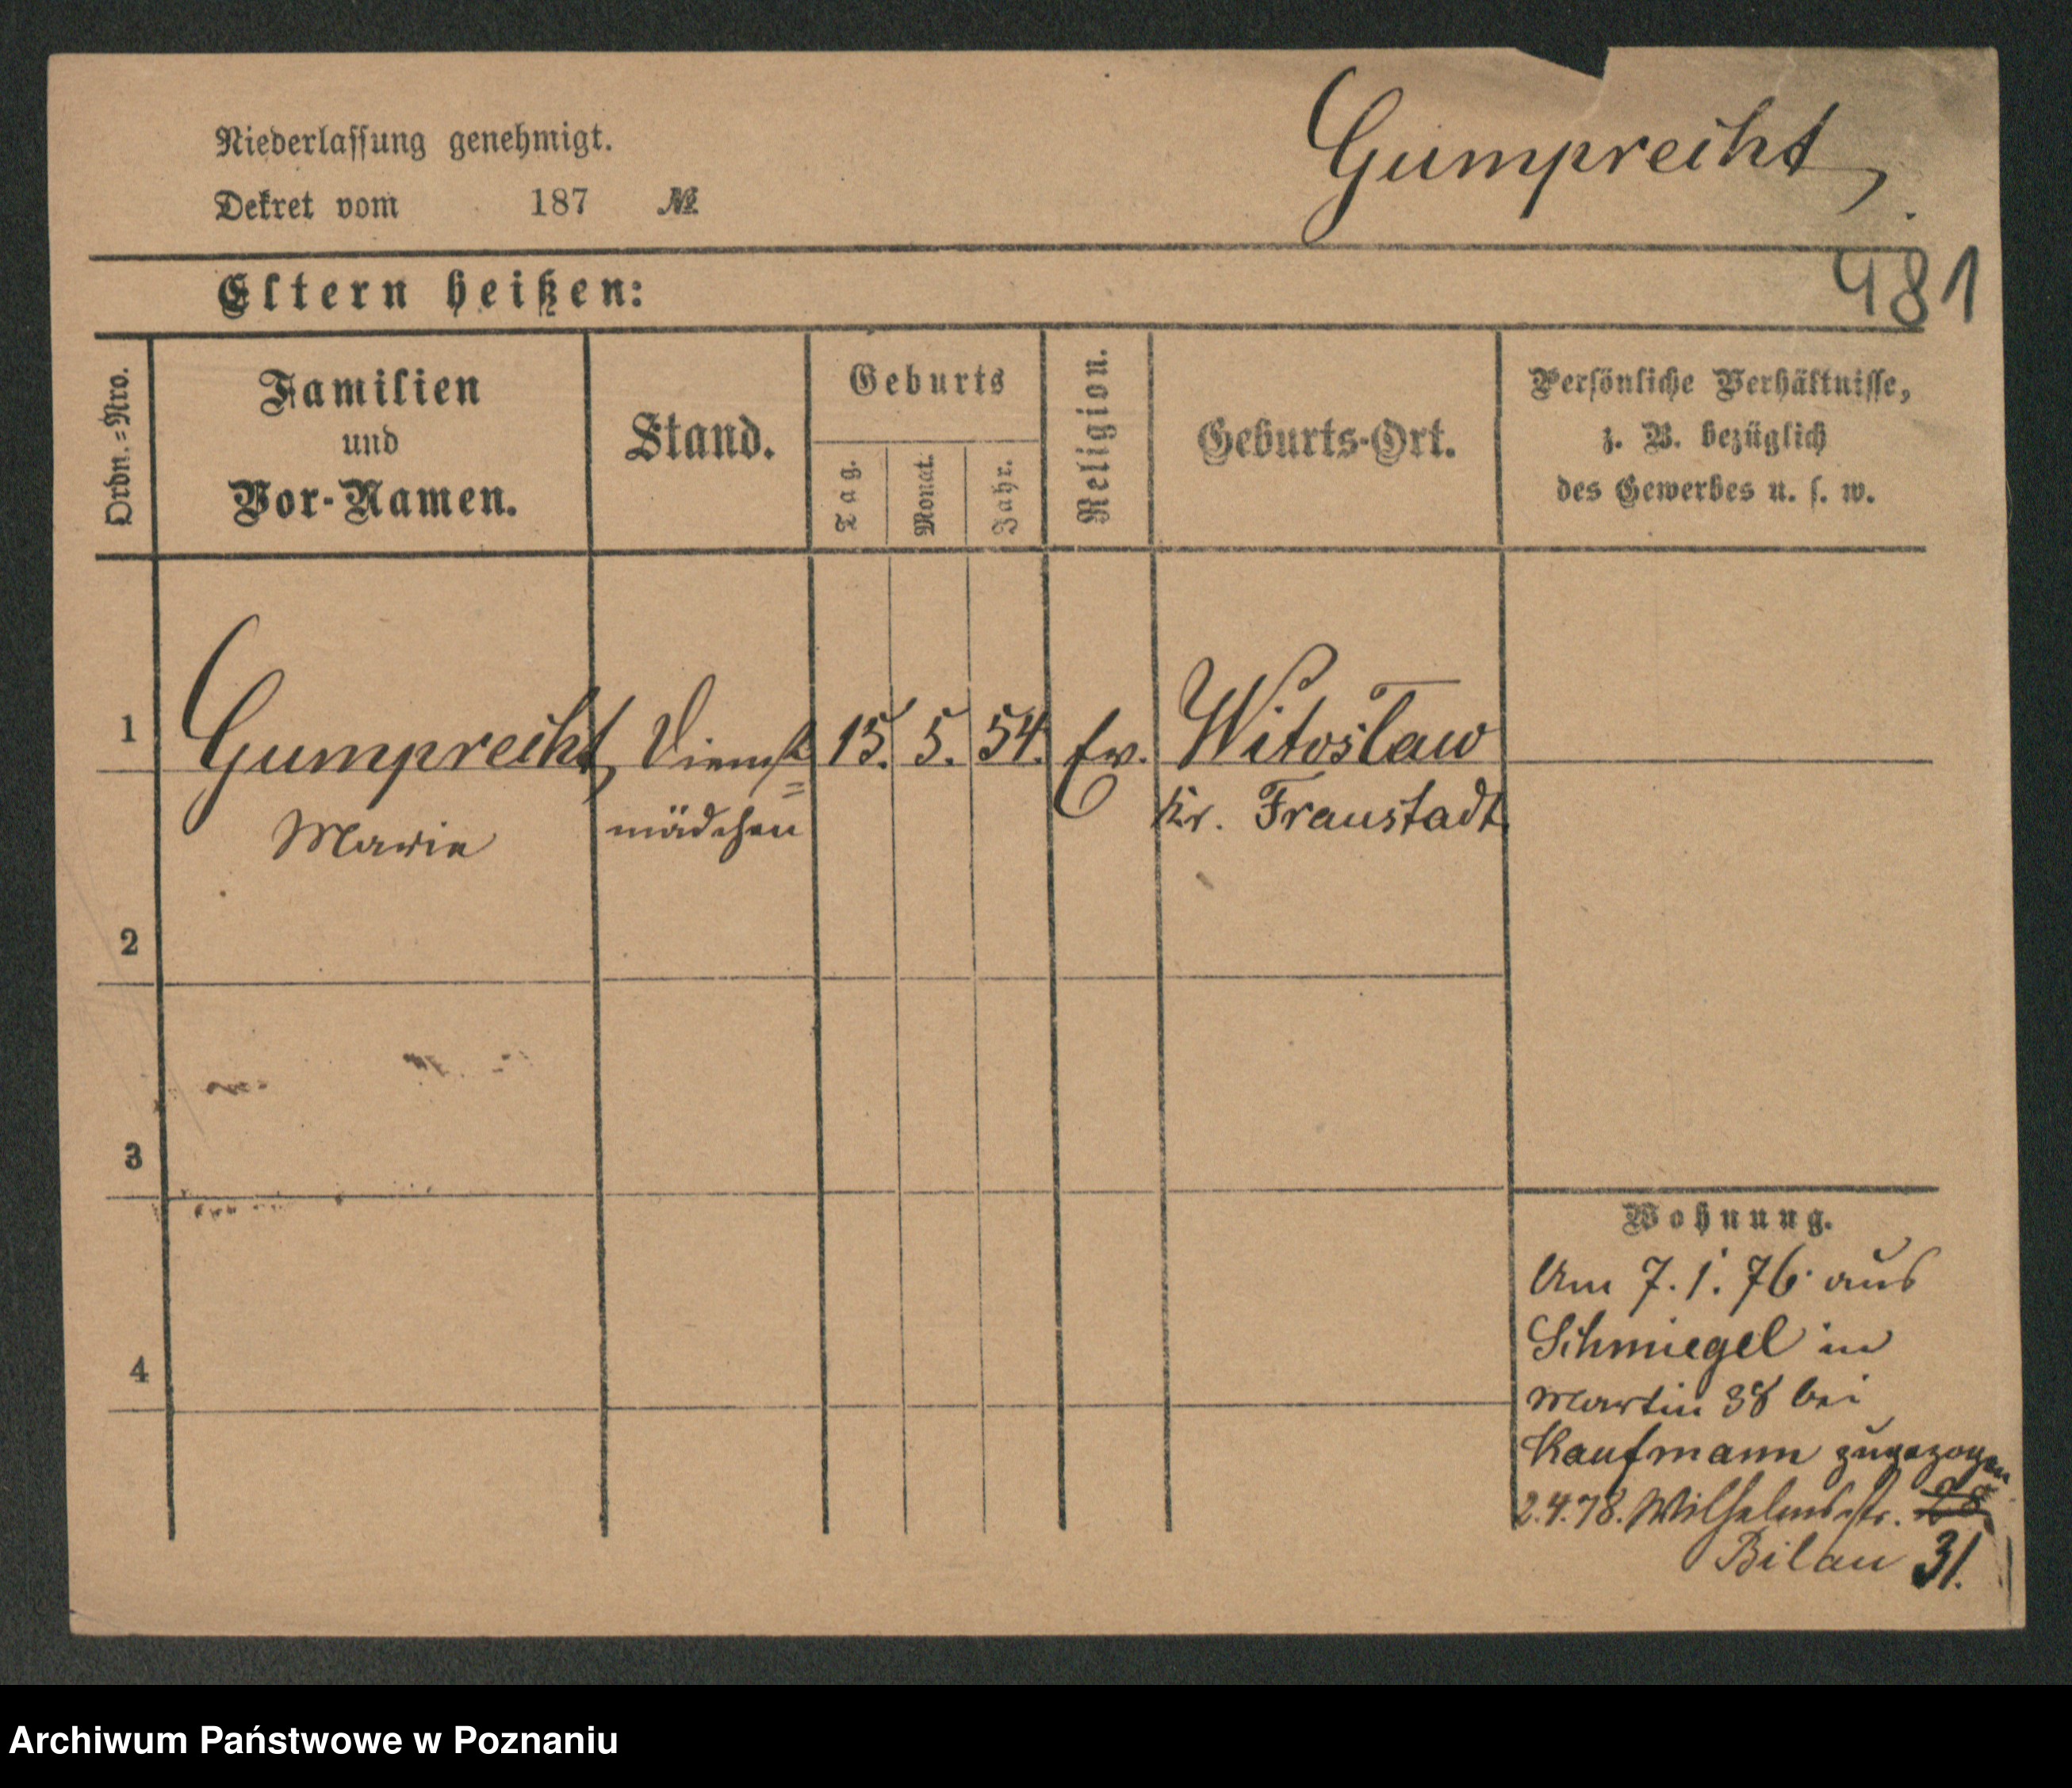 Niederlassung genehmigt.
Dekret vom 187 №
Gumprecht,
481
Eltern heißen:
Ordn.=Nro.
Familien
und
Vor-Namen.
Stand.
Geburts
Tag.
Monat.
Jahr.
Religion.
Geburts-Ort.
Persönliche Verhältnisse,
z. B. bezüglich
des Gewerbes u. s. w.
1 Gumprecht, Dienst= 15. 5. 54. Ev. Witoslaw
Marie mädchen Kr. Fraustadt
2
3
4
Wohnung.
Am 7.1.76 aus
Schmiegel in
Martin 38 bei
Kaufmann zugezogen
2.4.78. Wilhelmsstr. 28
Bilau 31.
Archiwum Państwowe w Poznaniu